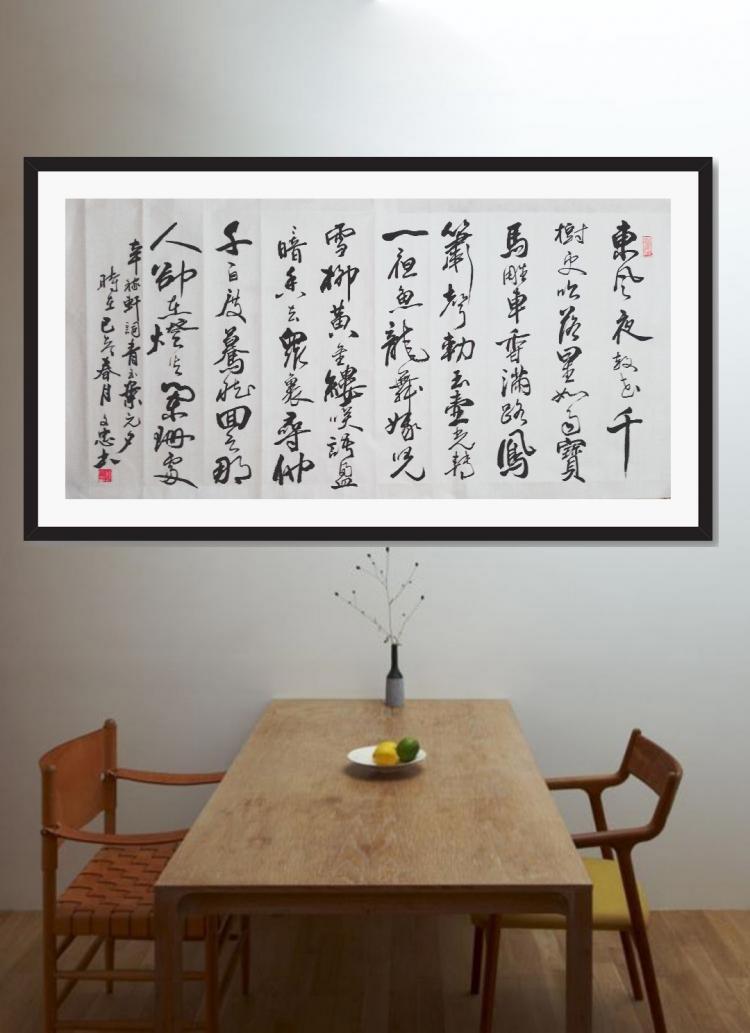 東風夜放花千
樹更吹落星如雨寶
馬雕車香滿路鳳
簫聲動玉壺光轉
一夜魚龍舞蛾兒
雪柳黄金縷笑語盈
暗香去眾裏尋他
千百度驀然回首那
人卻在燈火闌珊處
辛稼軒詞青玉案元夕
時在己亥春月文忠書